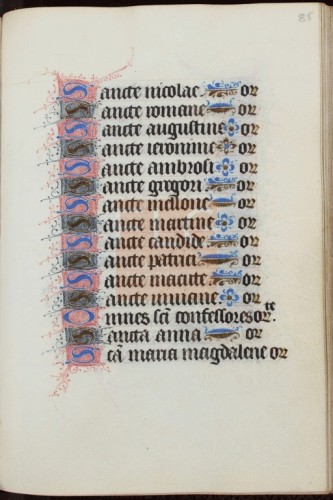 85
Sancte nicolae or
Sancte romane or
Sancte augustine or
Sancte ieronime or
Sancte ambrosi or
Sancte gregori or
Sancte mellone or
Sancte martine or
Sancte candide or
Sancte patrici or
Sancte macute or
Sancte or
Omnes sci confessores orte
Sancta anna or
Sca maria magdalene or